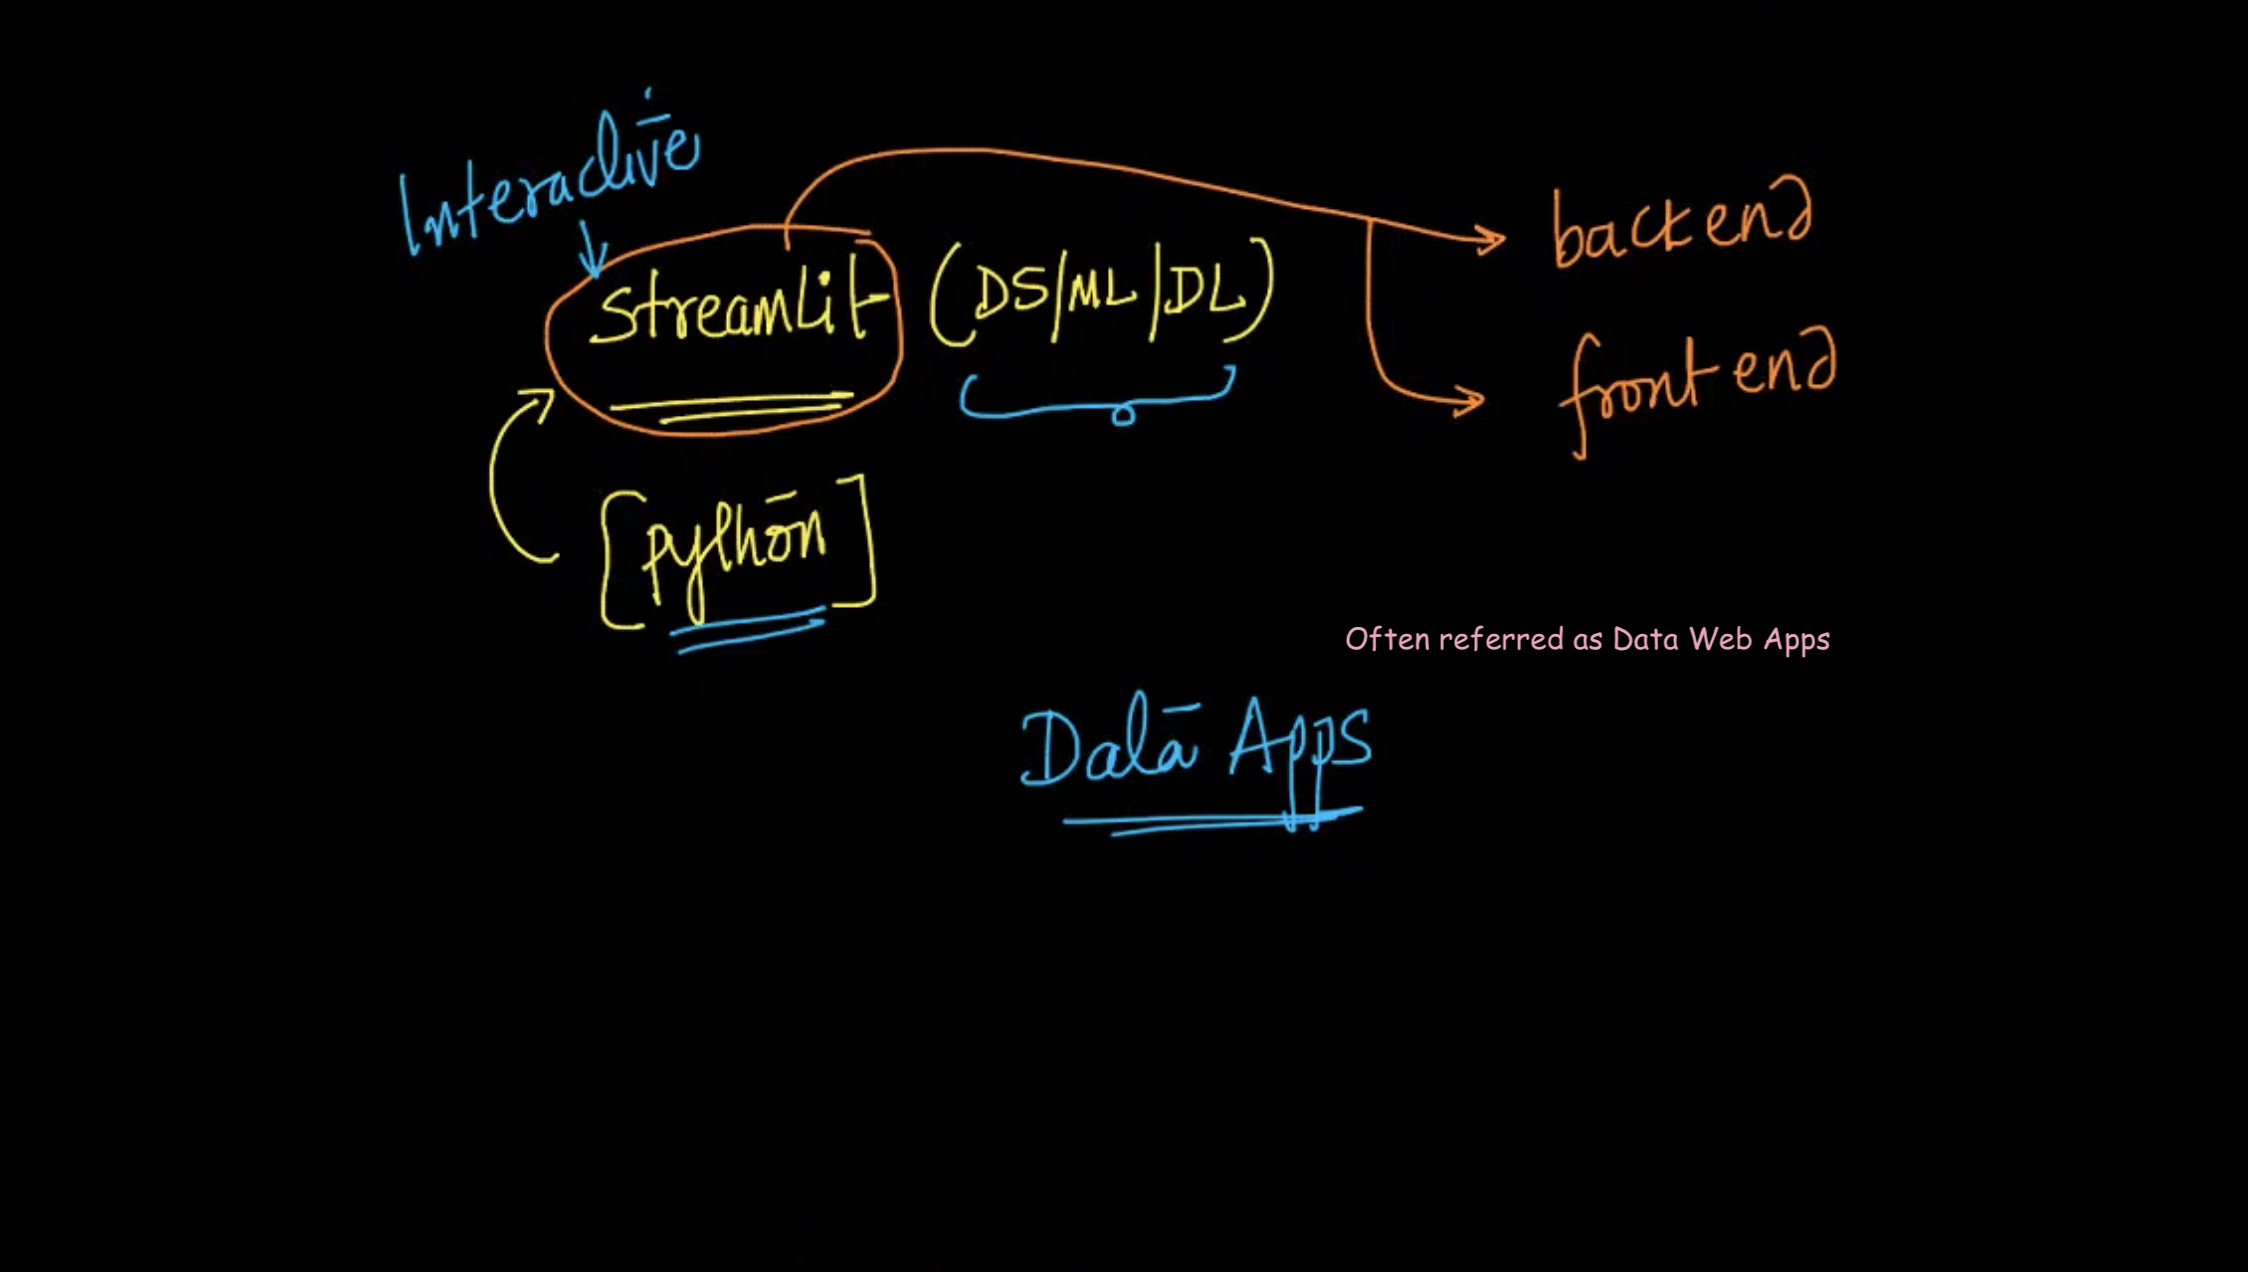 Interactive
Streamlit (DS/ML/DL)
backend
frontend
[python]
Often referred as Data Web Apps
Data Apps